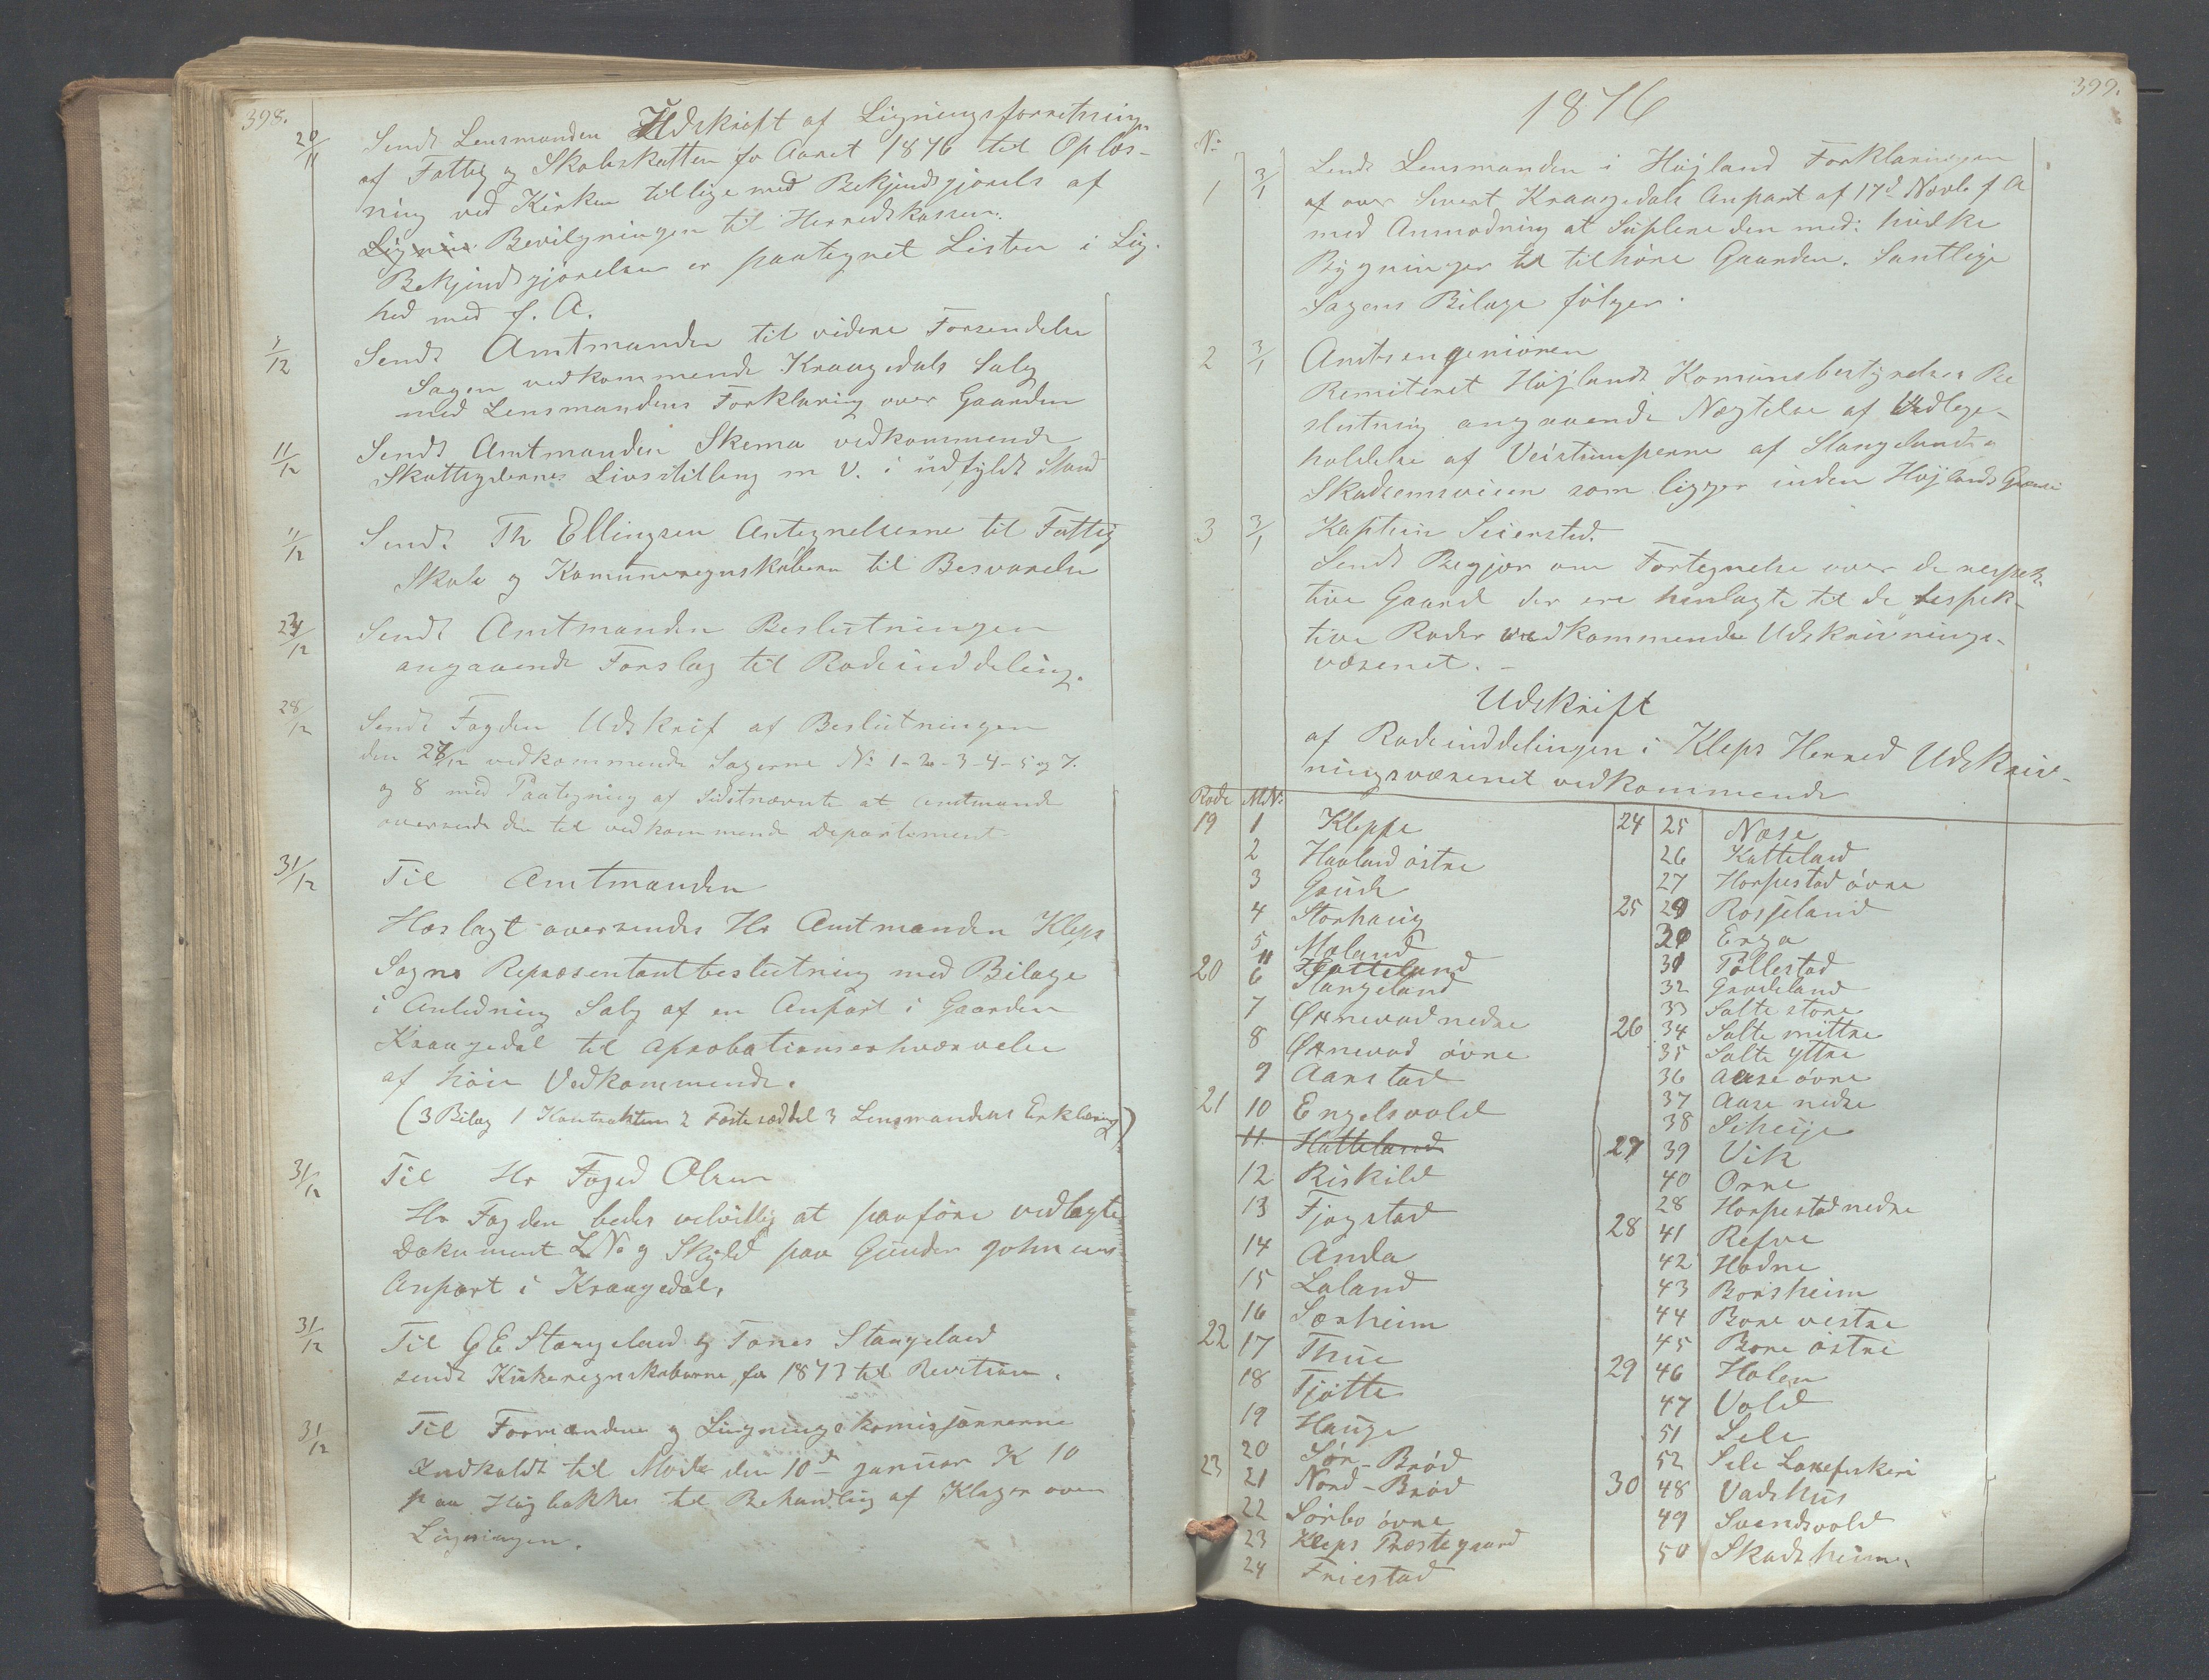 398.
20/11 Sendt Lensmanden Udskrift af Ligningsforretningen
af Fattig og Skoleskatten for Aaret 1876 til Oplæs-
ning ved Kirken tillige med Bekjendtgjørels af
Bevilgningen til Herredskassen.
Bekjendtgjørelsen er paategnet Listen i Lig-
hed med f. A.
1/12 Sendt Amtmanden til videre Forsendelse
Sagen vedkommende Kraagedals Salg
med Lensmandens Forklaring over Gaarden
11/12 Sendt Amtmanden Skema vedkommende
Skattydernes Livsstilling m V. i udfyldt Stand
11/12 Sendt Th Ellingsen Antegnelserne til Fattig
Skole og Komuneregnskabern til Besvarelse
24/12 Sendt Amtmanden Beslutningen
angaaende Forslag til Rodeinddeling.
28/12 Sendt Fogden Udskrif af Beslutningen
den 28/12 vedkommende Sagerne No 1-2-3-4-5 og 7.
og 8 med Paategning af Sidstnævnte at amtmande
oversende den til vedkommende Departement
31/12 Til Amtmanden
Hoslagt oversendes Hr Amtmanden Kleps
Sogns Repræsentantbeslutning med Bilage
i Anledning Salg af en Anpart i Gaarden
Kraagedal til Aprobationserhvervelse
af høie Vedkommende.
(3 Bilag 1 Kontrakten 2 Festesæddel 3 Lensmandens Erklæring)
31/12 Til Hr Foged Olsen
Hr Fogden bedes velvillig at paaføre vedlagte
Dokument LNo og Skyld paa Gunder Johnsens
Anpart i Kraagedal.
31/12 Til G E Stangeland og Tønes Stangeland
sendt Kirkeregnskaberne for 1873 til Revition.
31/12 Til Formændene og Ligningskomisjonærerne
Indkaldt til Møde den 10de Januar K 10
paa Høgbakken til Behandling af Klager over
Ligningen.
399.
1876
No
1 3/1 Sendt Lensmanden i Højland Forklaringen
af over Sivert Kraagedals Anpart af 17d Novb f A
med Anmodning at Suplere den med: hvilke
Bygninger til tilhøre Gaarden. Samtlige
Sagens Bilage følger.
2 3/1 Amtsengeniøren
Remiteret Højlands Komunebestyrelses Be
slutning angaaende Nægtelse af Vedlige-
holdelse af Veistumperne af Stangelands
Skadsemsveien som ligger inden Højlands Grænse
3 3/1 Kaptein Seiersted.
Sendt Begjær om Fortegnelse over de respek-
tive Gaarde der ere henlagte til de respek-
tive Roder vedkommende Udskrivnings-
væsenet. -
Udskrift
af Rodeinddelingen i Kleps Herred Udskriv-
ningsvæsenet vedkommende
Rode MNo
19 1 Kleppe
2 Haaland østre
3 Grude
4 Storhaug
5 Moland
11 Hatteland
20 6 Stangeland
7 Ørnevad nedre
8 Ørnevad øvre
9 Aarstad
21 10 Engelsvold
11 Hatteland
12 Riskild
13 Fjogstad
14 Anda
15 Laland
16 Særheim
22 17 Thue
18 Tjøtte
19 Hauge
20 Sør-Brød
23 21 Nord-Brød
22 Sørbo øvre
23 Kleps Præstegaard
24 Friestad
24 25 Næse
26 Katteland
27 Horpestad øvre
25 29 Rosseland
30 Erga
31 Pollestad
32 Grødeland
33 Salte store
26 34 Salte mittre
35 Salte yttre
36 Aase øvre
37 Aase nedre
38 Skeije
27 39 Vik
40 Orre
28 Horpestad nedre
28 41 Refve
42 Hodne
43 Borsheim
44 Bore vestre
45 Bore østre
29 46 Holen
47 Vold
51 Sele
52 Sele Laxefiskeri
30 48 Vadshus
49 Svendsvold
50 Skadsheim